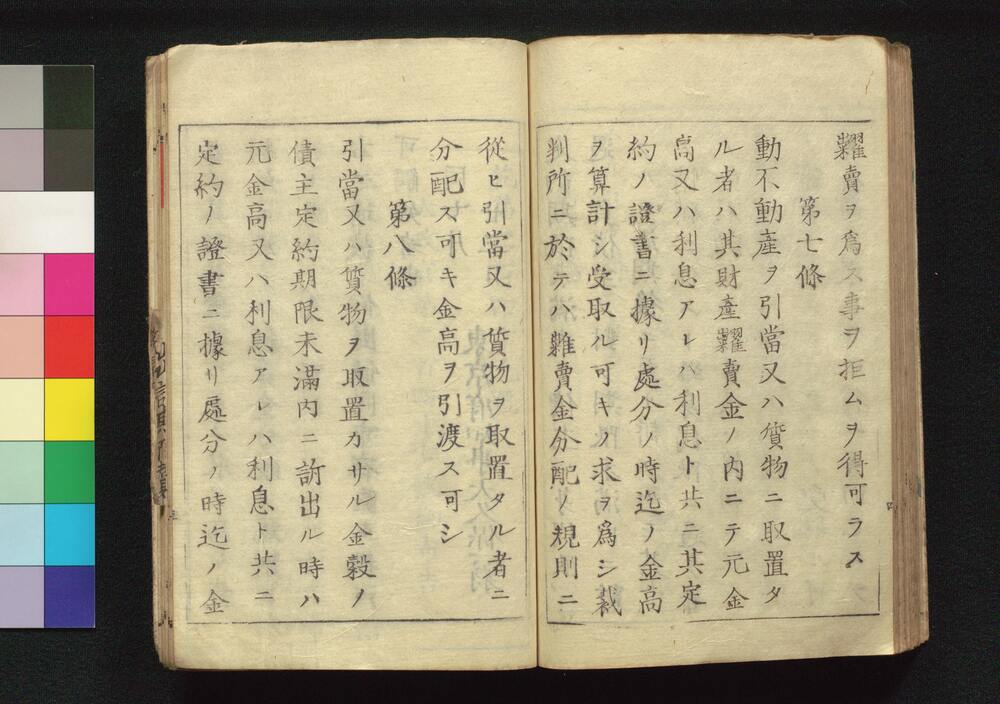 糶賣ヲ爲ス事ヲ拒ムヲ得可ラス
第七條
動不動産ヲ引當又ハ貨物ニ取置タ
ル者ハ其財産糶賣金ノ内ニテ元金
高又ハ利息アレハ利息ト共ニ其定
約ノ證書ニ據リ處分ノ時迄ノ金高
ヲ算計シ受取ル可キノ求ヲ爲シ裁
判所ニ於テハ糶賣金分配ノ規則ニ
從ヒ引當又ハ貨物ヲ取置タル者ニ
分配ス可キ金高ヲ引渡ス可シ
第八條
引當又ハ質物ヲ取置カサル金穀ノ
債主定約期限未滿内ニ訴出ル時ハ
元金高又ハ利息アレハ利息ト共ニ
定約ノ證書ニ據リ處分ノ時迄ノ金
四